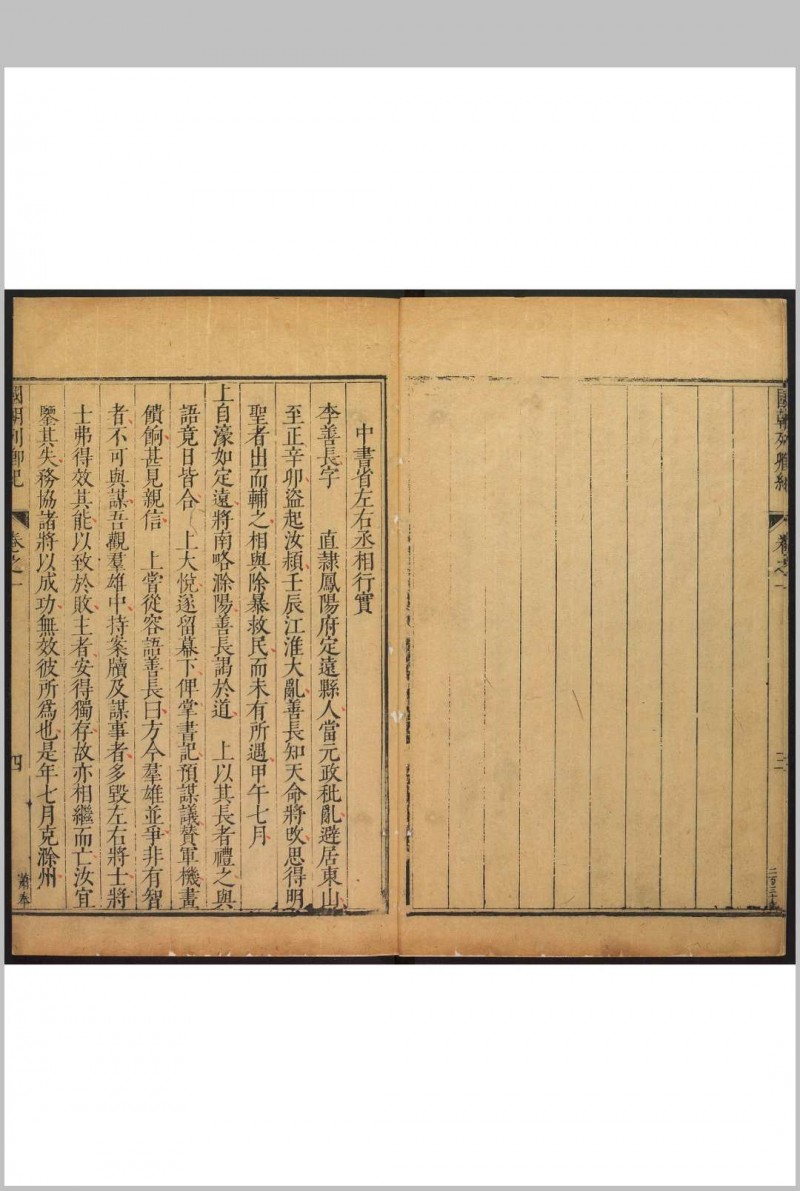 國朝列卿紀
卷之一
三
中書省左右丞相行實
李善長字　直隸鳳陽府定遠縣人當元政秕亂避居東山
至正辛卯盜起汝潁壬辰江淮大亂善長知天命將改思得明
聖者出而輔之相與除暴救民而未有所遇甲午七月
上自濠如定遠將南略滁陽善長謁於道　上以其長者禮之與
語竟日皆合　上大悅遂留幕下俾掌書記預謀議贊軍機畫
饋餉甚見親信　上嘗從容語善長曰方今羣雄並爭非有智
者不可與謀吾觀羣雄中持案牘及謀事者多毀左右將士將
士弗得效其能以致於敗主者安得獨存故亦相繼而亡汝宜
鑒其失務協諸將以成功無效彼所爲也是年七月克滁州
國朝列卿紀
卷之一
四